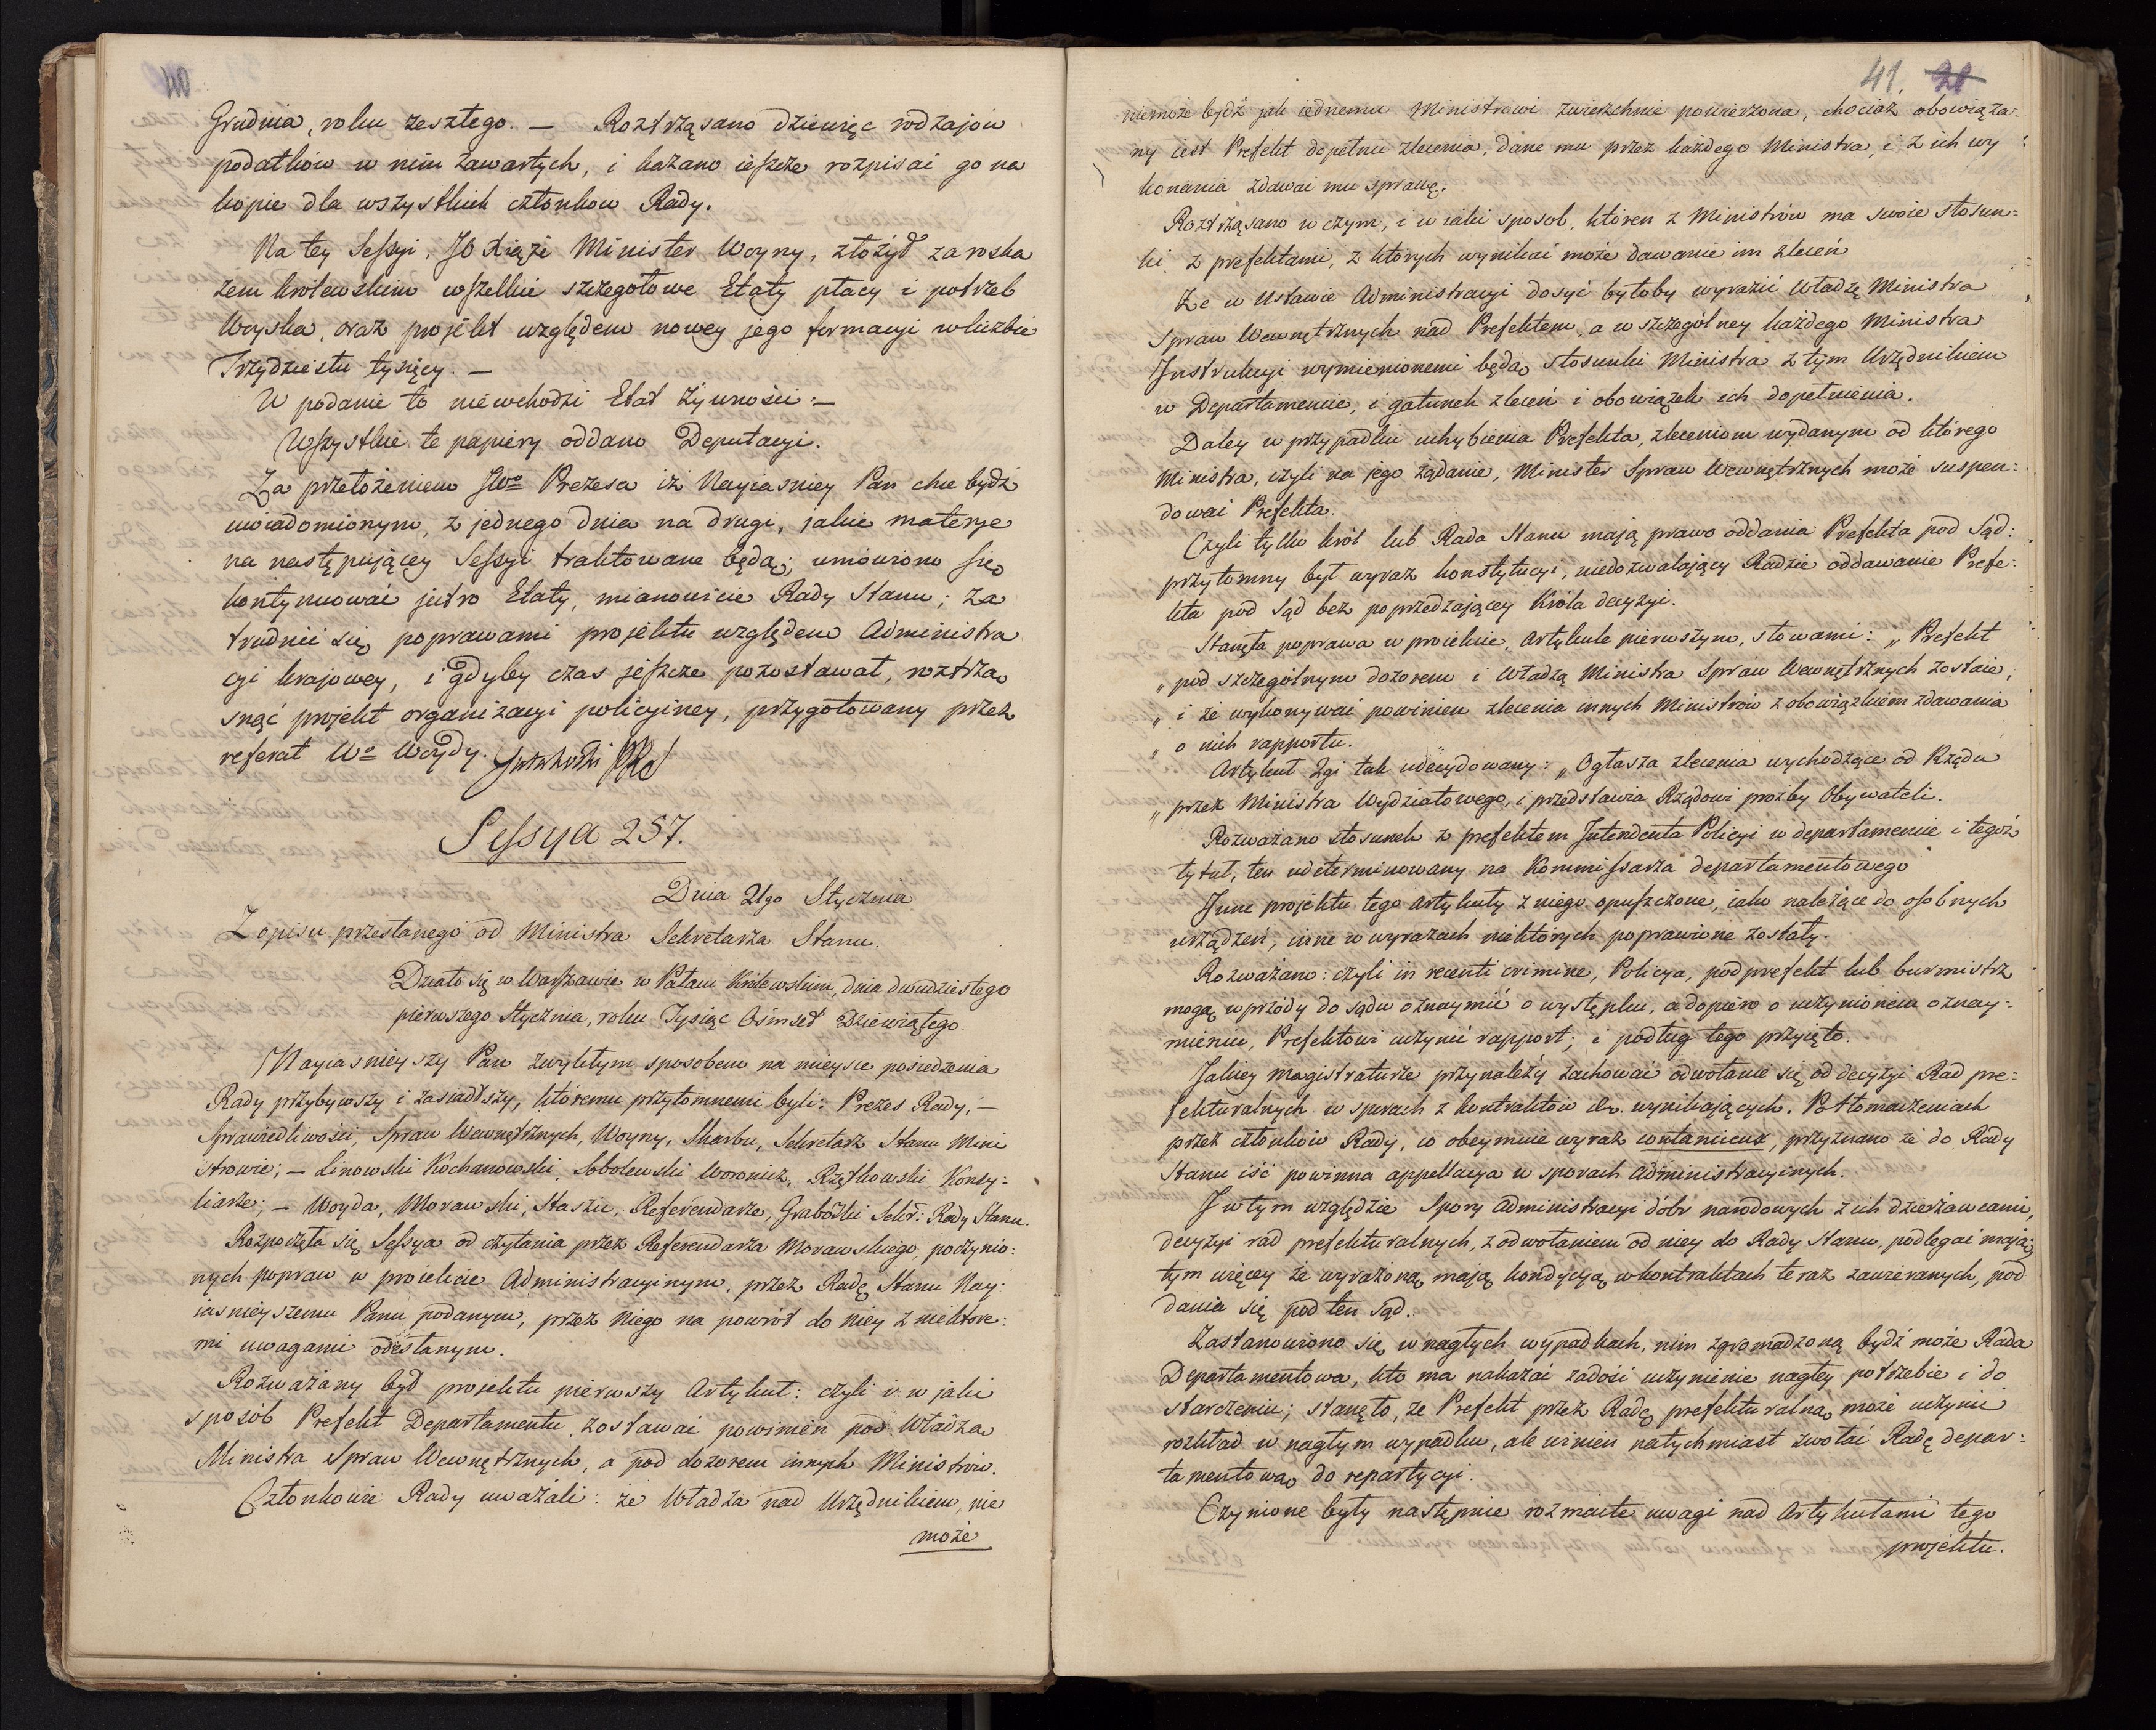 40
Grudnia, roku zeszłego. — Roztrząsano dziewięc rodzajow
podatkow w nim zawartych, i kazano ieszcze rozpisać go na
kopie dla wszystkich członkow Rady.
Na tey Sessyi, JO Xiąże Minister Woyny, złożył za roska
zem krolewskim wszelkie szczegołowe Etaty płacy i potrzeb
Woyska, oraz projekt względem nowey jego formacyi w liczbie
Trzydziestu tysięcy. —
W podanie to niewchodzi Etat Żywności. —
Wszystkie te papiery oddano Deputacyi.
Za przełożeniem JWo Prezesa iż Nayiasniey Pan chce bydź
uwiadomionym, z jednego dnia na drugi, jakie materye
na następuiącey Sessyi traktowane będą; umowiono się
kontynuować jutro Etaty, mianowicie Rady Stanu; za
trudnić się poprawami projektu względem Administra
cyi krajowey, i gdyby czas jeszcze pozostawał, roztrzą
snąć projekt organizacyi policyiney, przygotowany przez
referat Wo Woydy.
Sessya 257.
Dnia 21go Stycznia
Z opisu przesłanego od Ministra Sekretarza Stanu.
Działo się w Warszawie w Pałacu Królewskim, dnia dwudziestego
pierwszego Stycznia, roku Tysiąc Ośmset Dziewiątego.
Nayiasnieyszy Pan zwykłym sposobem na mieysce posiedzenia
Rady przybywszy i zasiadłszy, któremu przytomnemi byli: Prezes Rady, —
Sprawiedliwości, Spraw Wewnętrznych, Woyny, Skarbu, Sekretarz Stanu Mini
strowie; — Linowski Kochanowski, Sobolewski Woronicz, Rzętkowski Konsy:
liarze; — Woyda, Morawski, Staszic, Referendarze, Grabowski Sekr: Rady Stanu.
Rozpoczęła się Sessya od czytania przez Referendarza Morawskiego, poczynio:
nych popraw w proiekcie Administracyinym, przez Radę Stanu Nay:
iasnieyszemu Panu podanym, przez Niego na powrót do Niey z niektore:
mi uwagami odesłanym.
Rozważany był projektu pierwszy Artykuł: czyli i w jaki
sposób Prefekt Departamentu, zostawać powinien pod Władzą
Ministra Spraw Wewnętrznych, a pod dozorem innych Ministrów.
Członkowie Rady uważali: że Władza nad Urzędnikiem, nie
może
41. 28
niemoże bydź jak iednemu Ministrowi zwierzchnie powierzona, chociaż obowiąza:
ny iest Prefekt dopełnić zlecenia, dane mu przez każdego Ministra, i z ich wy
konania zdawać mu sprawę.
Roztrząsano w czym, i w iaki sposob, któren z Ministrów ma swoie stosun:
ki z prefektami, z których wynikać może dawanie im zleceń
Że w Ustawie Administracyi dosyć byłoby wyrazić Władzę Ministra
Spraw Wewnętrznych nad Prefektem, a w szczególney każdego Ministra
Instrukcyi wymienionemi będą, stosunki Ministra z tym Urzędnikiem
w Departamencie, i gatunek zleceń i obowiązek ich dopełnienia.
Daley w przypadku uchybienia Prefekta, zleceniom wydanym od którego
Ministra, czyli na jego żądanie, Minister Spraw Wewnętrznych może suspen:
dować Prefekta.
Czyli tylko król lub Rada Stanu mają prawo oddania Prefekta pod Sąd:
przytomny był wyraz konstytucyi, niedozwalający Radzie oddawanie Prefe:
kta pod Sąd bez poprzedzającey Króla decyzyi.
Stanęła poprawa w proiekcie, Artykule pierwszym, słowami: „Prefekt
„pod szczególnym dozorem i Władzą Ministra Spraw Wewnętrznych zostaie,
„i że wykonywać powinien zlecenia innych Ministrów z obowiązkiem zdawania
„o nich rapportu.
Artykuł 2gi tak udecydowany: „Ogłasza zlecenia wychodzące od Rządu
„przez Ministra Wydziałowego, i przedstawia Rządowi prozby Obywateli.
Rozważano stosunek z prefektem Intendenta Policyi w departamencie i tegoż
tytuł, ten udeterminowany na Kommissarza departamentowego
Inne projektu tego artykuły z niego opuszczone, iako należące do osobnych
urządzeń, inne w wyrazach niektórych poprawione zostały.
Rozważano: czyli in recenti crimine, Policya, podprefekt lub burmistrz
mogą wprzódy do sądu oznaymić o występku, a dopiéro o uczynionem oznay:
mieniu, Prefektowi uczynić rapport; i podług tego przyięto.
Jakiey Magistraturze przynależy zachować odwołanie się od decyzyi Rad pre:
fekturalnych w sporach z kontraktow &c. wynikających. Po tłomaczeniach
przez członków Rady, co obeymuie wyraz contancieux, przyznano że do Rady
Stanu iść powinna appellacya w sporach Administracyinych.
I w tym względzie Spory Administracyi dóbr narodowych z ich dzierżawcami,
decyzyi rad prefekturalnych, z odwołaniem od niey do Rady Stanu, podlegać mają;
tym więcey że wyrażoną mają kondycyą w kontraktach teraz zawieranych, pod
dania się pod ten Sąd.
Zastanowiono się, w nagłych wypadkach, nim zgromadzoną bydź może Rada
Departamentowa, kto ma nakazać zadość uczynienie nagłey potrzebie i do
starczeniu; stanęło, że Prefekt przez Radę prefekturalną może uczynić
rozkład w nagłym wypadku, ale winien natychmiast zwołać Radę depar:
tamentową do repartycyi.
Czynione były następnie rozmaite uwagi nad Artykułami tego
projektu.